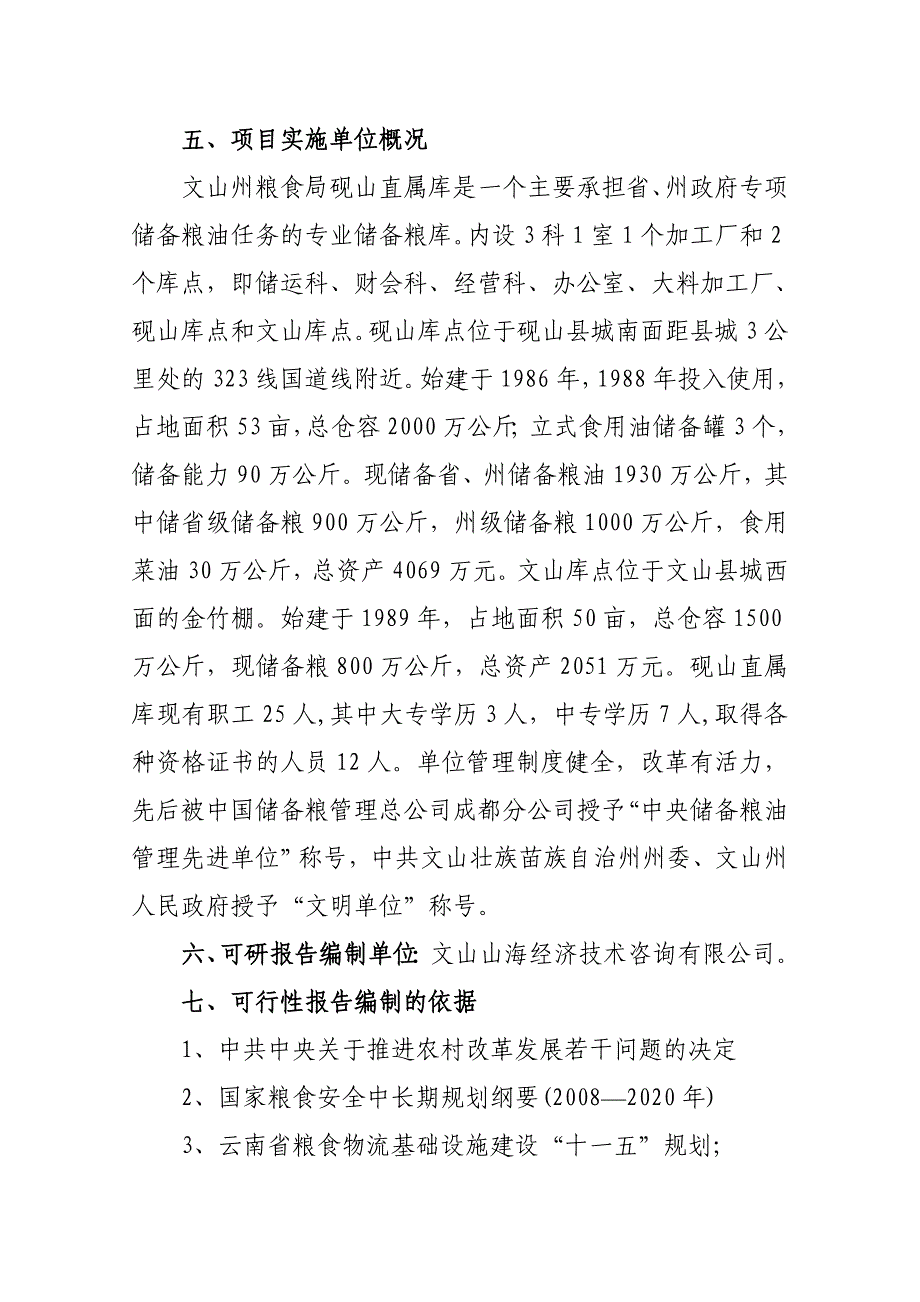 五、项目实施单位概况
文山州粮食局砚山直属库是一个主要承担省、州政府专项
储备粮油任务的专业储备粮库。内设 3 科 1 室 1 个加工厂和 2
个库点，即储运科、财会科、经营科、办公室、大料加工厂、
砚山库点和文山库点。砚山库点位于砚山县城南面距县城 3 公
里处的 323 线国道线附近。始建于 1986 年，1988 年投入使用，
占地面积 53 亩，总仓容 2000 万公斤；立式食用油储备罐 3 个，
储备能力 90 万公斤。现储备省、州储备粮油 1930 万公斤，其
中储省级储备粮 900 万公斤，州级储备粮 1000 万公斤，食用
菜油 30 万公斤，总资产 4069 万元。文山库点位于文山县城西
面的金竹棚。始建于 1989 年，占地面积 50 亩，总仓容 1500
万公斤，现储备粮 800 万公斤，总资产 2051 万元。砚山直属
库现有职工 25 人,其中大专学历 3 人，中专学历 7 人,取得各
种资格证书的人员 12 人。单位管理制度健全，改革有活力，
先后被中国储备粮管理总公司成都分公司授予“中央储备粮油
管理先进单位”称号，中共文山壮族苗族自治州州委、文山州
人民政府授予“文明单位”称号。
六、可研报告编制单位：文山山海经济技术咨询有限公司。
七、可行性报告编制的依据
1、中共中央关于推进农村改革发展若干问题的决定
2、国家粮食安全中长期规划纲要(2008—2020 年)
3、云南省粮食物流基础设施建设“十一五”规划；